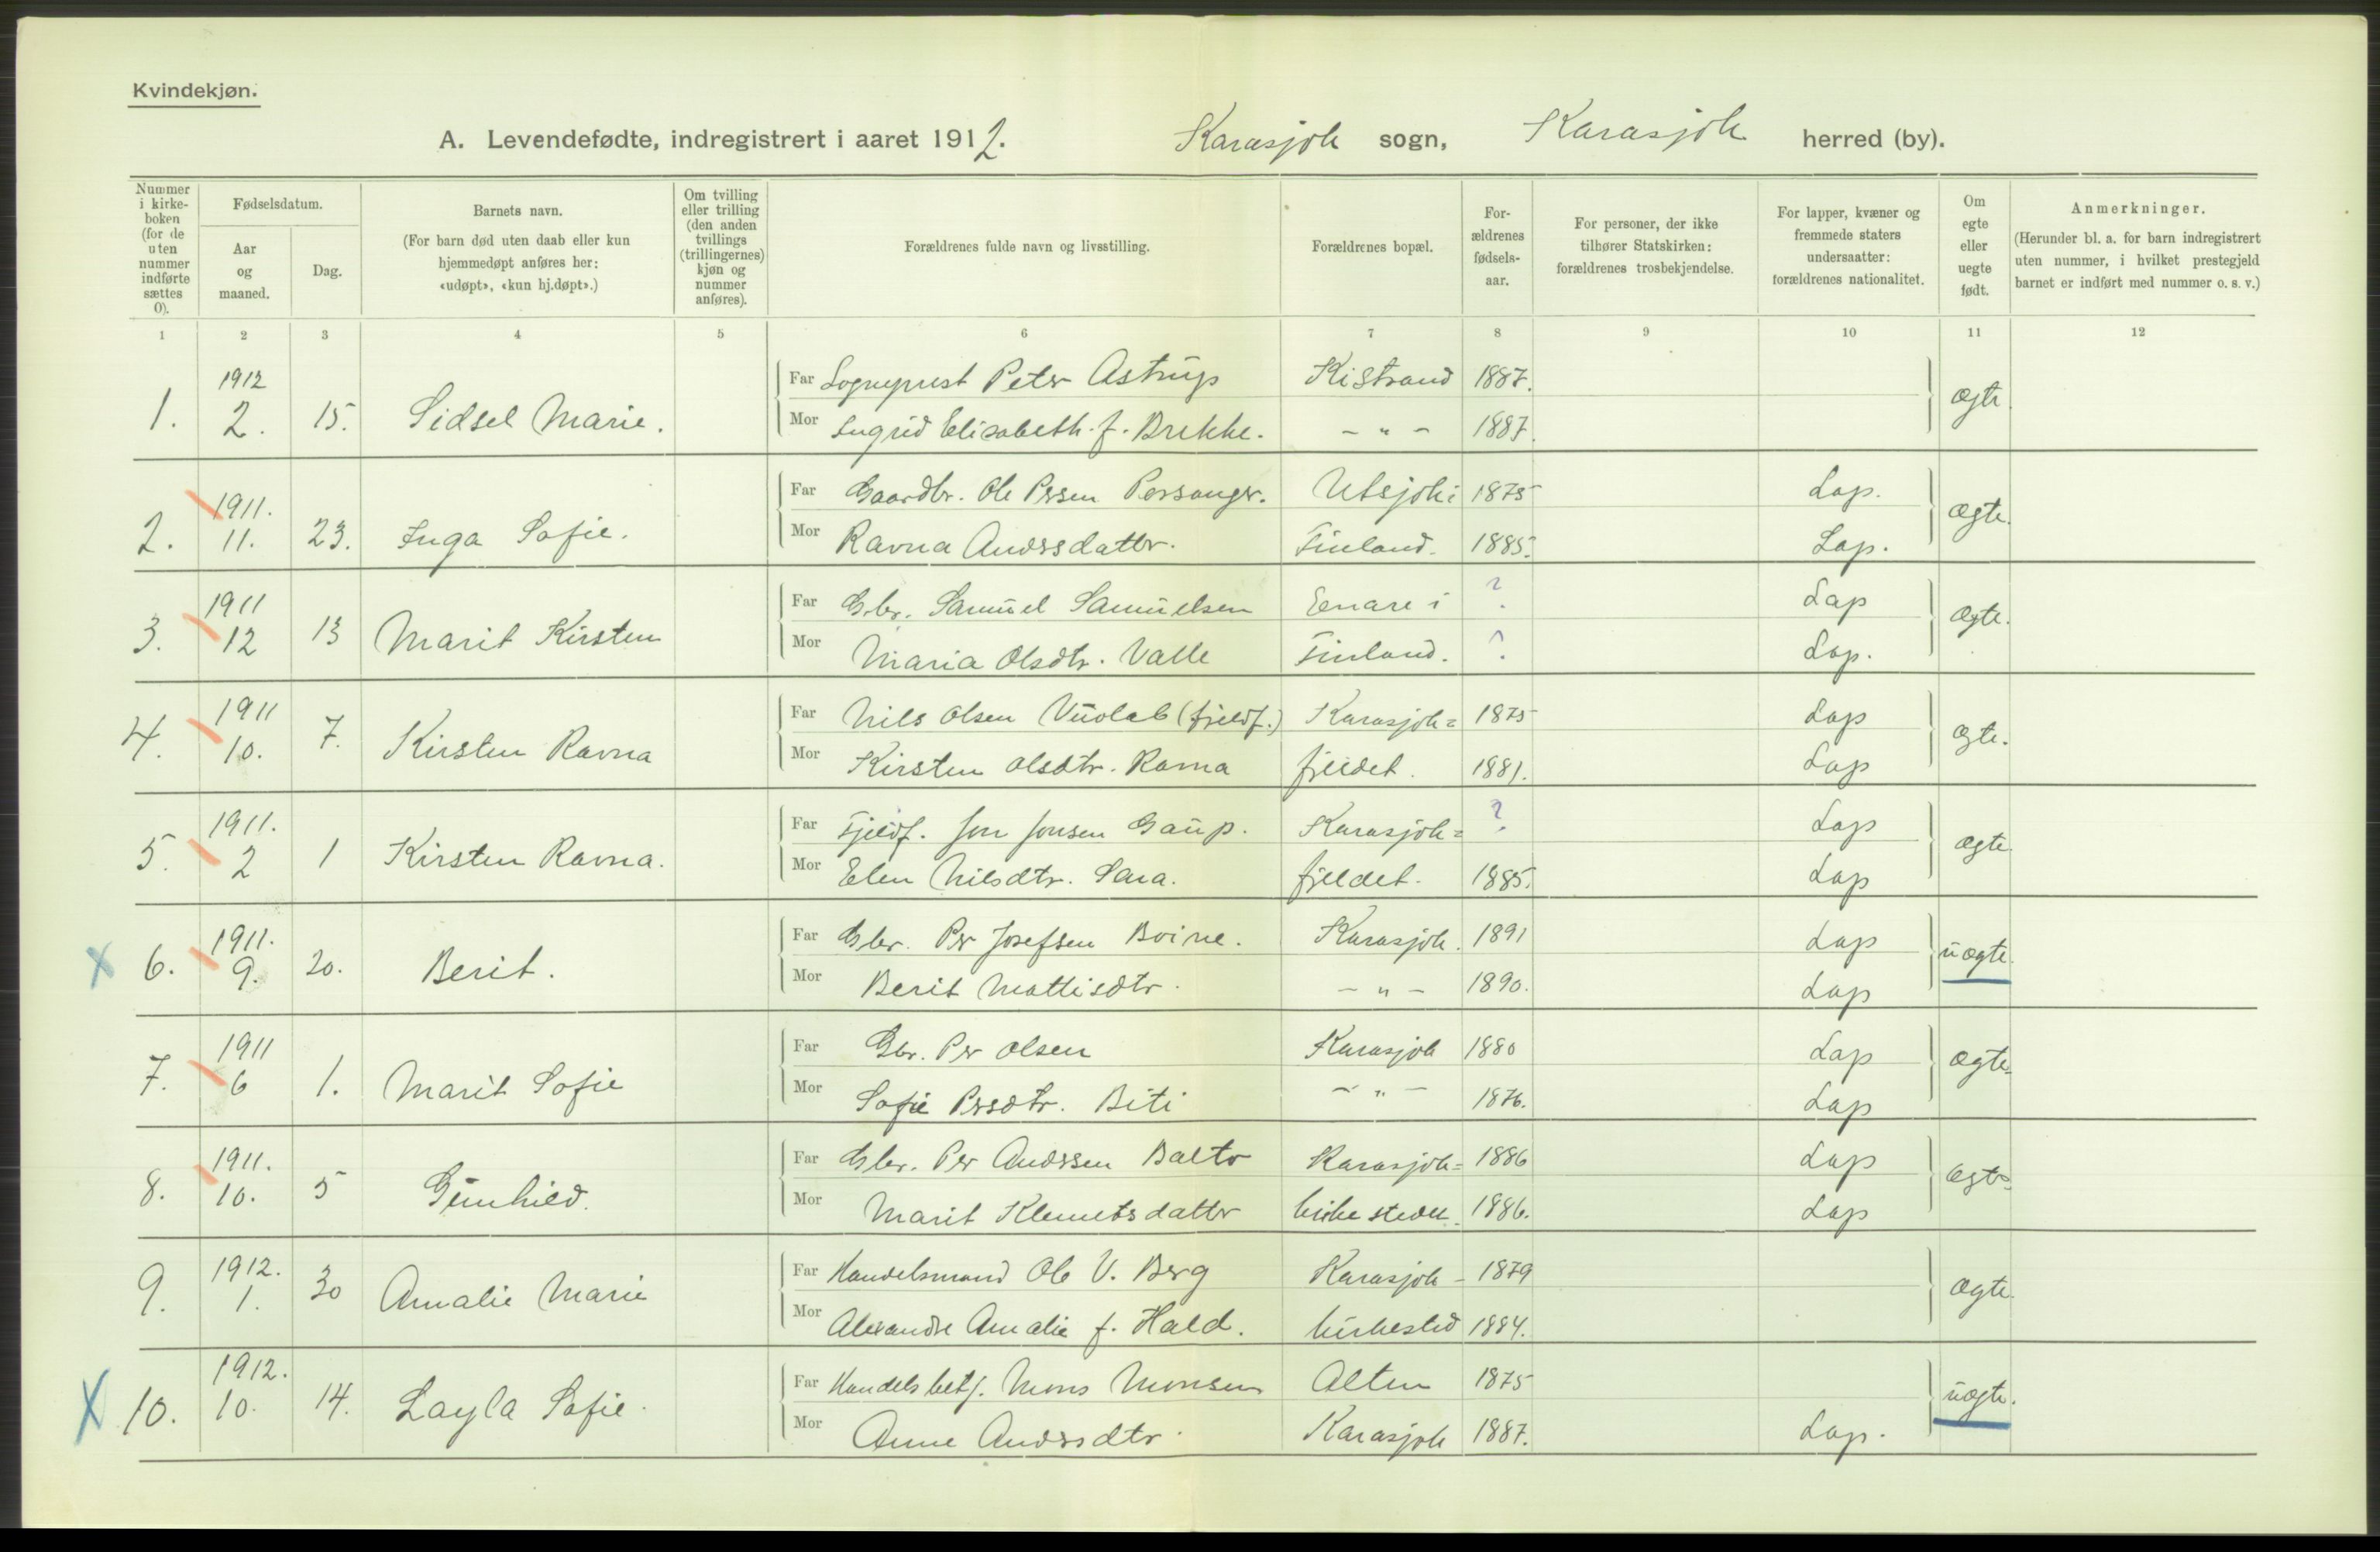 Kvindekjøn.
A. Levendefødte, indregistrert i aaret 1912. Karasjok sogn, Karasjok herred (by).
Nummer i kirkeboken (for de uten nummer indførte sættes 0).
Fødselsdatum.
Aar og maaned.
Dag.
Barnets navn.
(For barn død uten daab eller kun hjemmedøpt anføres her: «udøpt», «kun hj.døpt».)
Om tvilling eller trilling (den anden tvillings (trillingernes) kjøn og nummer anføres).
Forældrenes fulde navn og livsstilling.
Forældrenes bopæl.
Forældrenes fødselsaar.
For personer, der ikke tilhører Statskirken: forældrenes trosbekjendelse.
For lapper, kvæner og fremmede staters undersaatter: forældrenes nationalitet.
Om egte eller uegte født.
Anmerkninger.
(Herunder bl. a. for barn indregistrert uten nummer, i hvilket prestegjeld barnet er indført med nummer o. s. v.)
1 2 3 4 5 6 7 8 9 10 11 12
1. 1912 2. 15. Sidsel Marie. Far Sogneprest Peter Astrup Kistrand 1887. ægte
Mor Ingrid Elisabeth f. Brekke. - " - 1887.
2. 1911. 11. 23. Inga Sofie. Far Gaardbr. Ole Persen Porsanger. Utsjok i 1875 Lap. ægte.
Mor Ravna Andersdatter. Finland. 1885. Lap.
3. 1911 12 13 Marit Kirsten Far Gbr. Samuel Samuelsen Enare i ? Lap ægte.
Mor Maria Olsdtr. Valle Finland. ? Lap.
4. 1911 10. 7. Kirsten Ravna Far Nils Olsen Vuolab (fjeldf.) Karasjok= 1875 Lap ægte.
Mor Kirsten Olsdtr. Ravna fjeldet. 1881. Lap
5. 1911. 2 1 Kirsten Ravna. Far Fjeldf. Jon Jonsen Gaup. Karasjok= ? Lap ægte
Mor Elen Nilsdtr. Sara. fjeldet. 1885. Lap
X 6. 1911. 9. 20. Berit. Far Gbr. Per Josefsen Boine. Karasjok. 1891 Lap uægte.
Mor Berit Mattisdtr. - " - 1890. Lap
7. 1911 6 1. Marit Sofie Far Gbr. Per Olsen Karasjok 1880 Lap ægte
Mor Sofie Persdtr. Biti - " - 1876. Lap
8. 1911. 10. 5 Gunhild. Far Gbr. Per Anderssen Balto Karasjok= 1886 Lap ægte
Mor Marit Klemetsdatter kirkestedet. 1886. Lap
9. 1912. 1. 30 Amalie Marie Far Handelsmand Ole V. Berg Karasjok - 1879 ægte.
Mor Alexandre Amalie f. Hald. kirkested 1884.
X 10. 1912. 10. 14. Layla Sofie. Far Handelsbetj. Mons Monsen Alten 1875 uægte.
Mor Anne Andersdtr. Karasjok 1887. Lap.